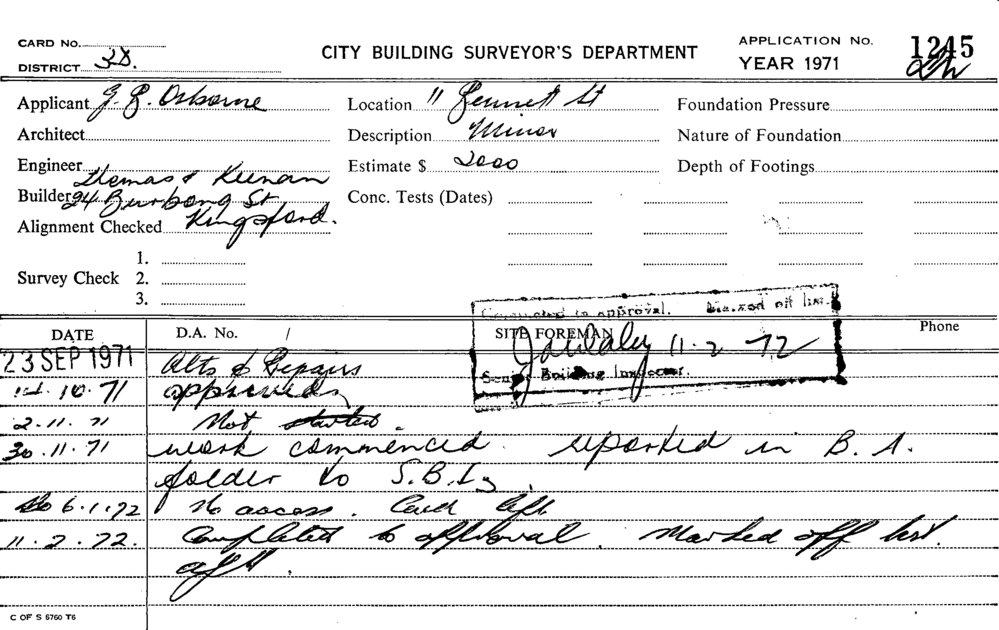 CARD No.
DISTRICT
CITY BUILDING SURVEYOR'S DEPARTMENT
APPLICATION No. 1245
YEAR 1971
Applicant J. Osborne
Location 11 Jennett St
Foundation Pressure
Architect
Description Minor
Nature of Foundation
Engineer
Estimate $ 2000
Depth of Footings
Thomas & Keenan
Builder 24 Burbong St
Conc. Tests (Dates)
Alignment Checked Kingsford.
1.
Survey Check 2.
3.
Completed to approval. Marked off list.
DATE
D.A. No. /
SITE FOREMAN
Phone
11-2-72
Senior Building Inspector.
23 SEP 1971 Alts & Repairs
10.71 approved
2.11.71 Not started.
30.11.71 work commenced. reported in B.I.
folder to S.B.I.
6.1.72 No access. Card left
11.2.72. Completed to approval. Marked off list.
C OF S 6760 T6